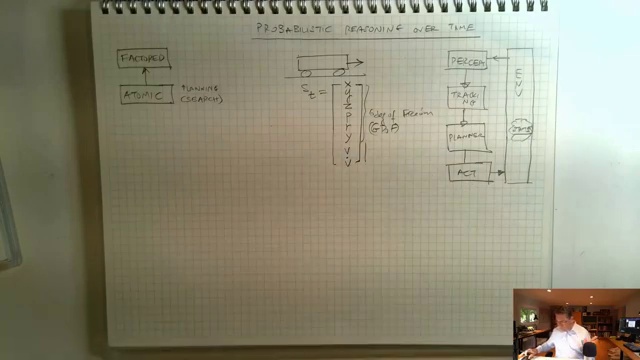 PROBABILISTIC REASONING OVER TIME
FACTORED
ATOMIC
PLANNING
(SEARCH)
S_t =
x
y
z
p
r
y
v
v̇
of
PERCEP
TRACKING
PLANNER
ACT
ENV